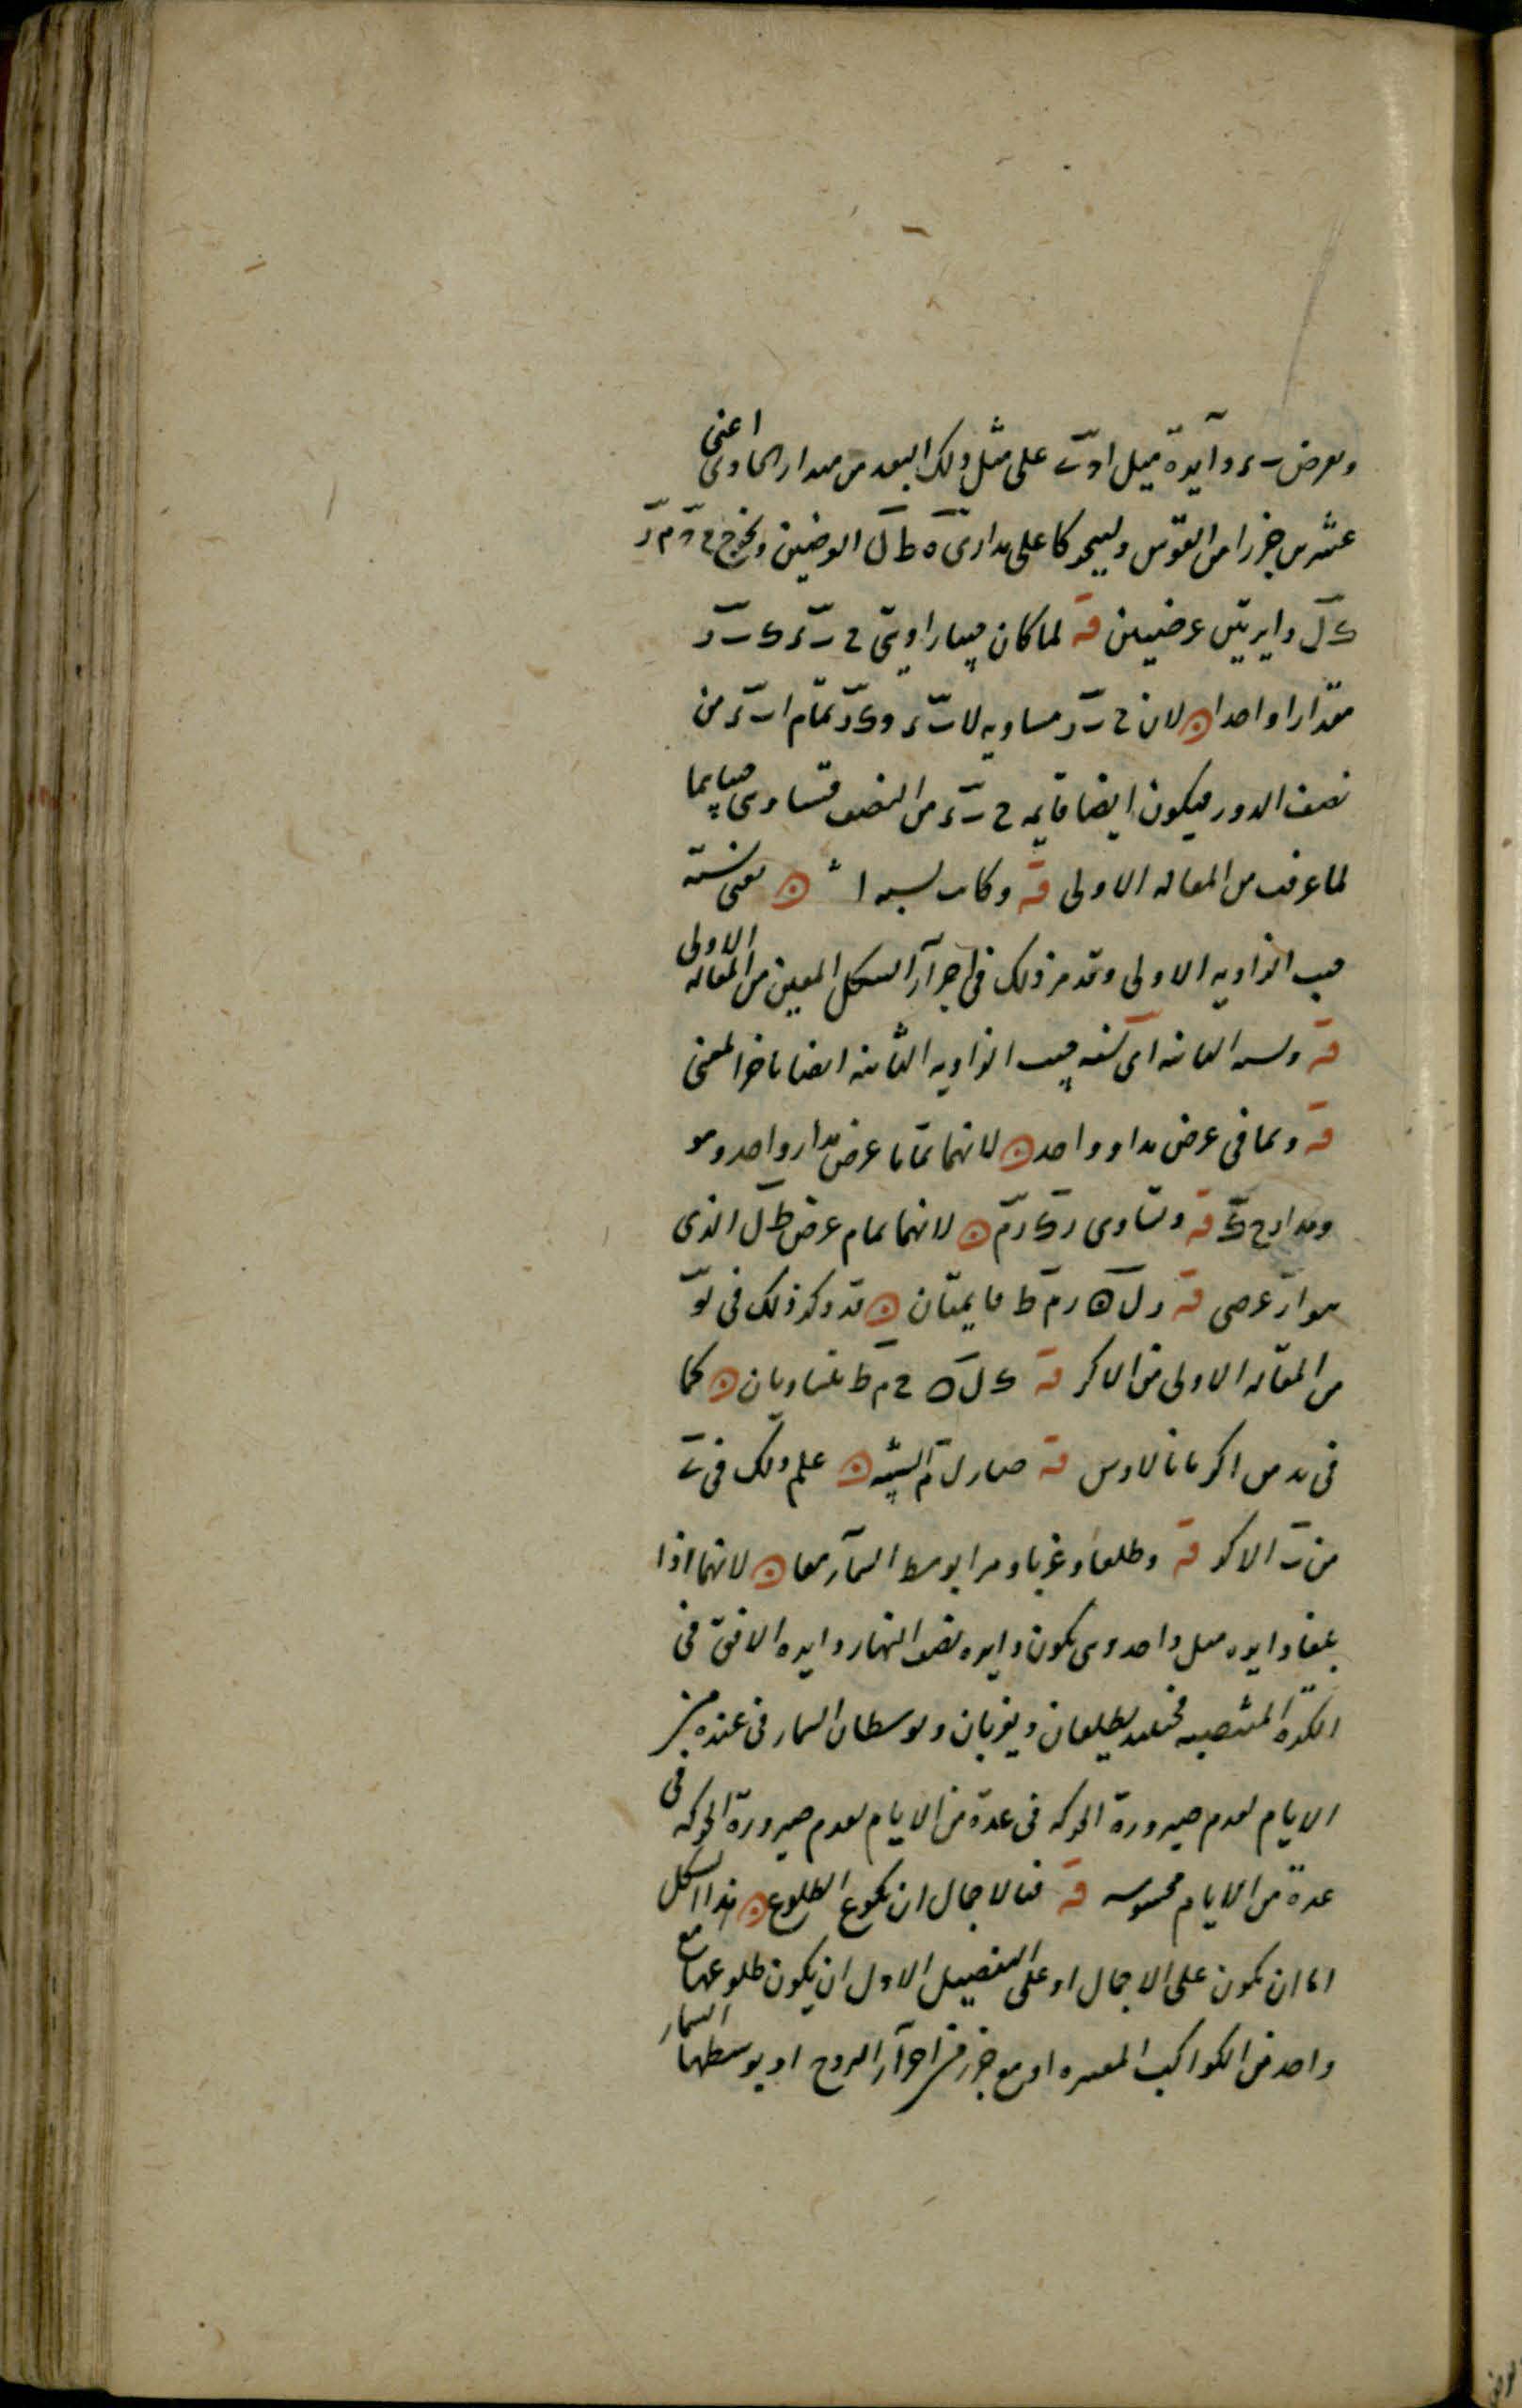 ونفرض ب ء دآيرة ميل او ب على مثل ذلك البعد من مبدا الحاوى اعنى
عشرين جزءا من القوس وليحركا على مدارى ه ط ل العرضيين ونخرج
ك ل دايرتين عرضيتين قه لما كان جيبا زاويتى ح ب ء ك ب د
مقدارا واحدا لان ح ب د مساويه لا ب ء و ك د تمام ا ب ء من
نصف الدور فيكون ايضا قايمه ح ب ء من النصف فتساوى جيباهما
لما عرفت من المقاله الاولى قه وكانت نسبه ا يعنى نسبة
جيب الزاويه الاولى وقد مر ذلك فى اجرآء الشكل المغنى من المقاله الاولى
قه ونسبه الثانيه اى نسبه جيب الزاويه الثانيه ايضا باخر المغنى
قه وهما فى عرض مدار واحد لانهما تماما عرض مدار واحد وهو
ومدار ح ك قه وتساوى ر ك ر م لانهما تمام عرض ط ل الذى
هو ار عرضى قه ر ل ه ر م ط قايمتان قد ذكر ذلك فى
من المقاله الاولى من الاكر قه ك ل ه ح م ط متساويان كما
فى يد من اكر مانالاوس قه صار ل م الشبيه علم ذلك فى ب
من ب الاكر قه وطلعا وغربا ومرا بوسط السمآء معا لانهما اذا
بلغا دايره ميل واحد وهى تكون دايره نصف النهار ودايره الافق فى
الكرة المنتصبه فحينئذ يطلعان ويغربان وتوسطان السماء فى عدة من
الايام لعدم صيرورة الحركه فى عدة من الايام لعدم صيرورة الحركه فى
عدة من الايام محسوسه قه فبالاجمال ان يكون الطلوع هذا الشكل
اما ان يكون على الاجمال او على التفصيل الاول ان يكون طلوعها مع
واحد من الكواكب المتحيره او مع جزء من اجزآء البروج او توسطها السماء